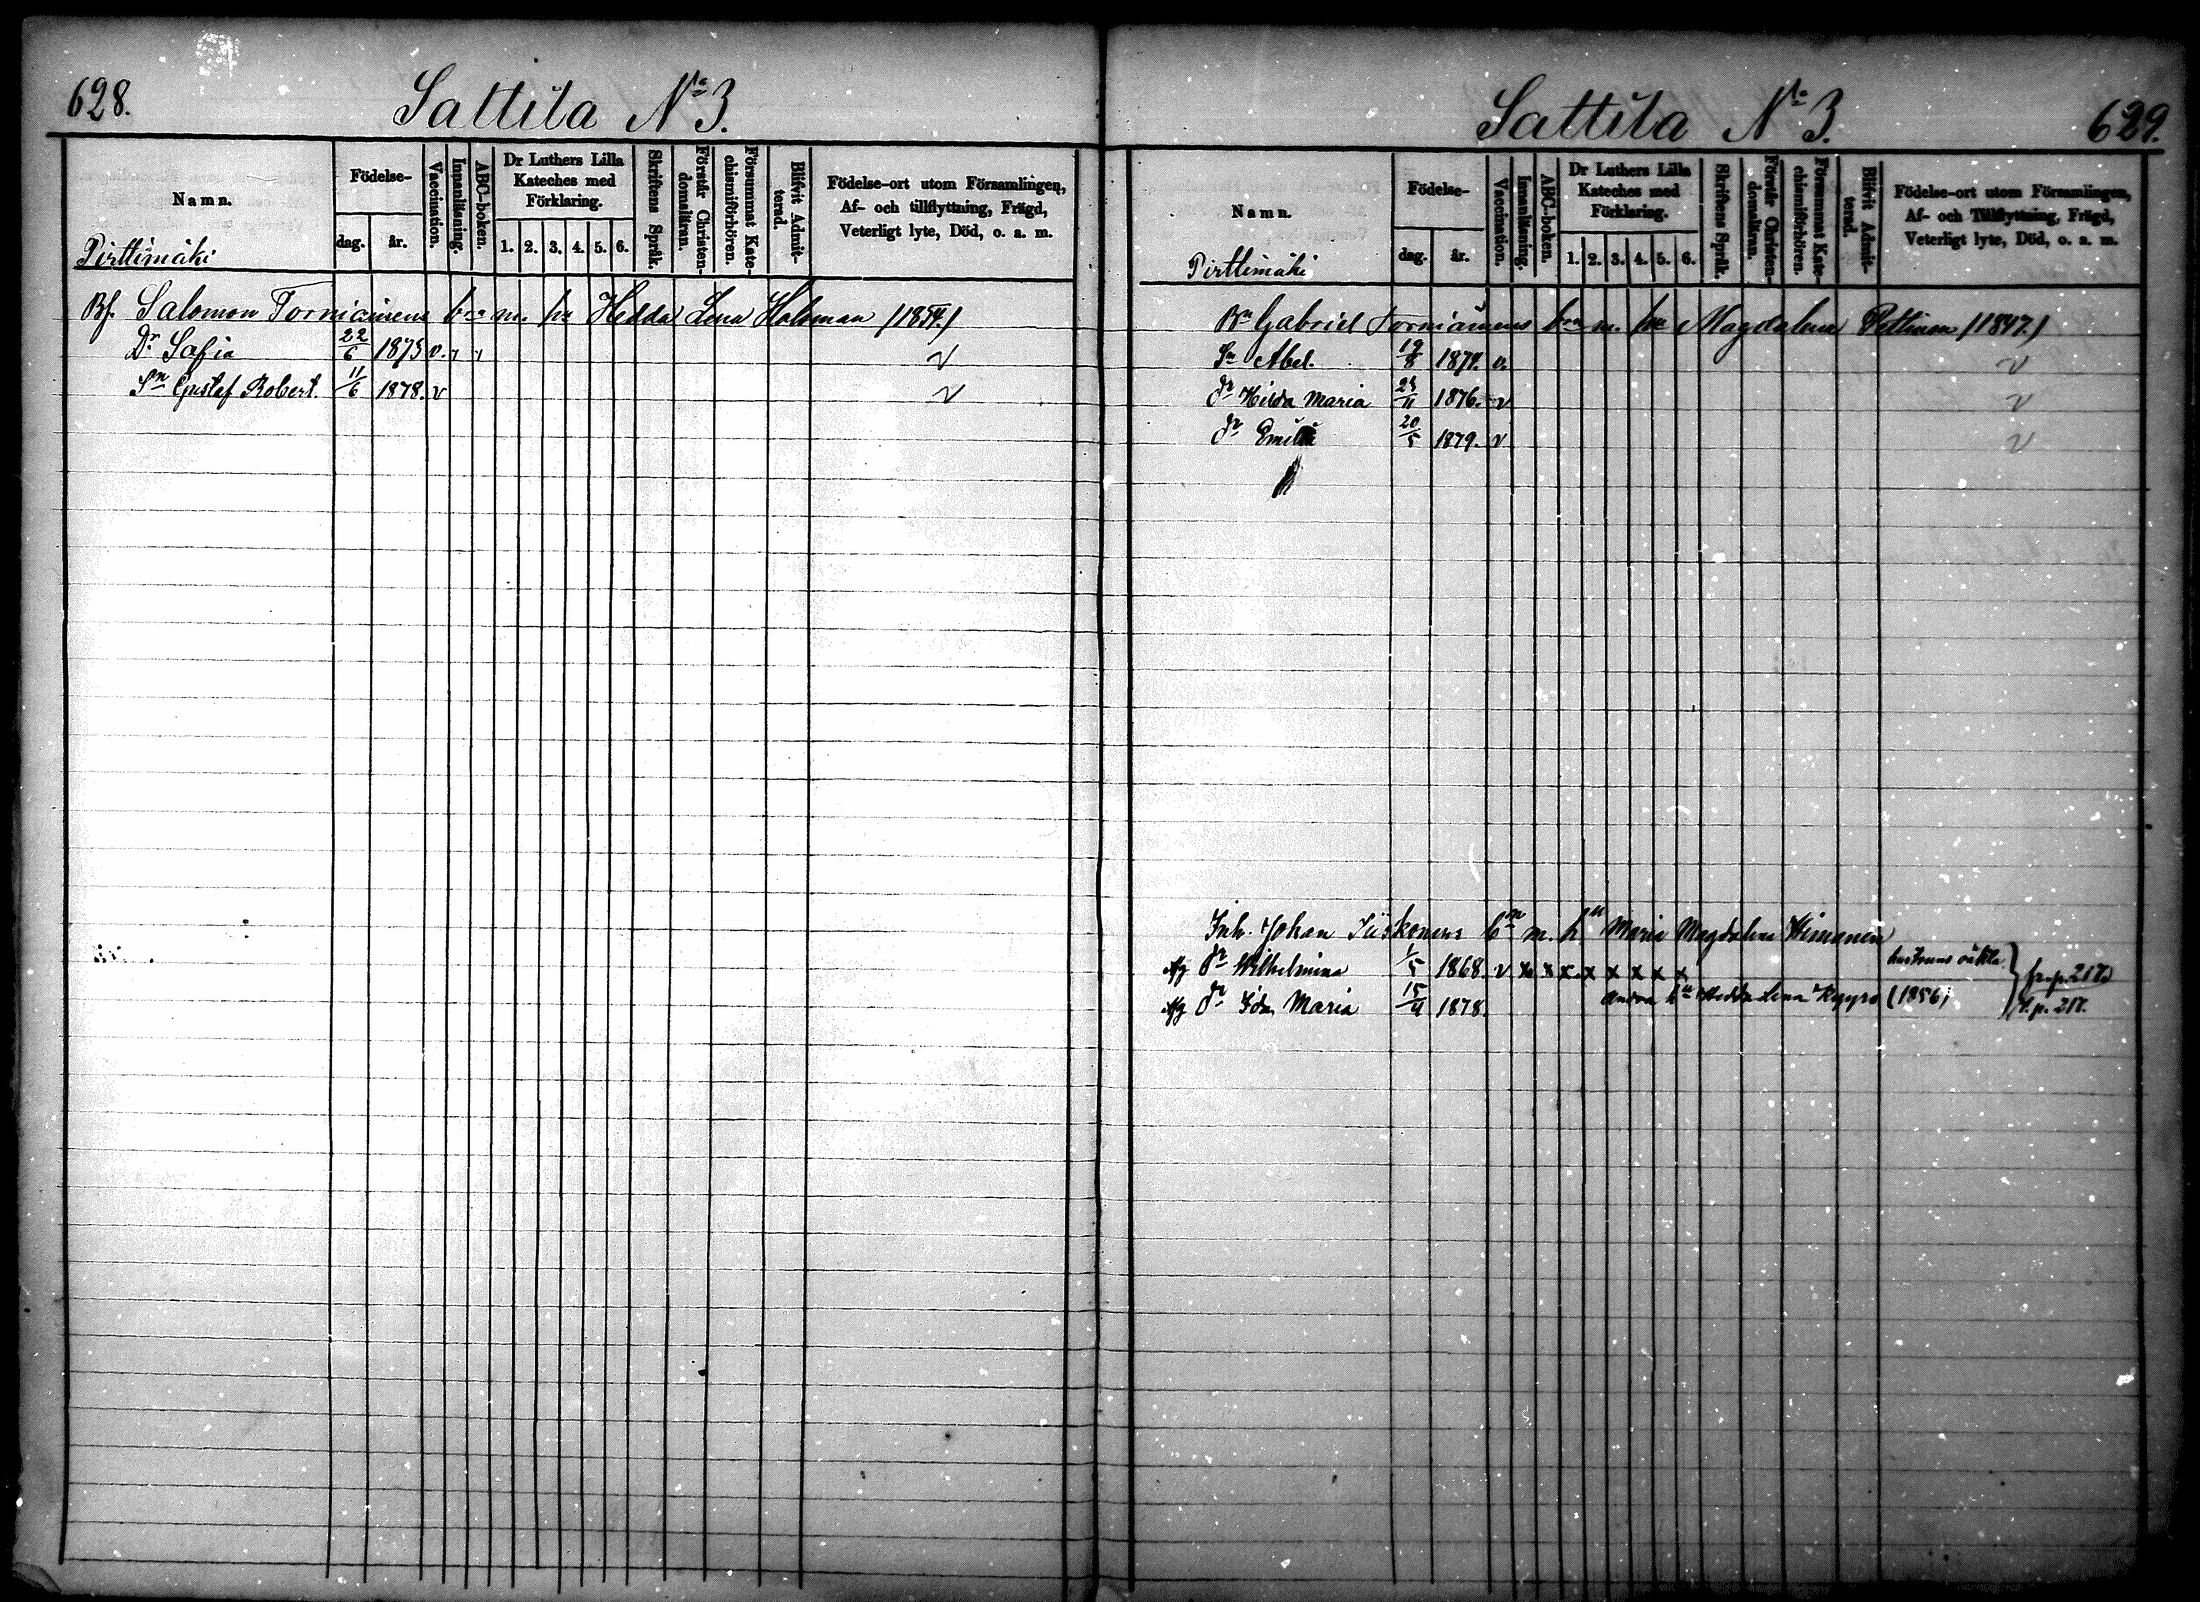 628.
Sattila No 3.
Namn.
Födelse-
dag.
år.
Vaccination.
Innanläsning.
ABC-boken.
Dr Luthers Lilla
Kateches med
Förklaring.
1. 2. 3. 4. 5. 6.
Skriftens Språk.
Förstår Christen-
domsläran.
Försummat Kate-
chismiförhören.
Blifvit Admit-
terad.
Födelse-ort utom Församlingen,
Af- och tillflyttning, Frägd,
Veterligt lyte, Död, o. a. m.
Pirttimäki
Bf. Salomon Torniainens brn m. hu Hedda Lena Halonen (1854.)
Dr Sofia 22/6 1875 v.
Sn Gustaf Robert. 11/6 1878. v
Sattila No 3.
629.
Namn.
Födelse-
dag.
år.
Vaccination.
Innanläsning.
ABC-boken.
Dr Luthers Lilla
Kateches med
Förklaring.
1. 2. 3. 4. 5. 6.
Skriftens Språk.
Förstår Christen-
domsläran.
Försummat Kate-
chismiförhören.
Blifvit Admit-
terad.
Födelse-ort utom Församlingen,
Af- och Tillflyttning, Frägd,
Veterligt lyte, Död, o. a. m.
Pirttimäki
Bn Gabriel Torniainens brn m. hu Magdalena Pettinen (1847.)
Sn Abel. 19/8 1874. v.
dr Hilda Maria 25/11 1876. v
dr Emilia 20/5 1879. v
Inh. Johan Iiskonens bn m. hu Maria Magdalena Himanen
dr Wilhelmina 1/5 1868. v x x x x x x x x
hustruns oäkta
fr. p. 217
dr Ida Maria 15/11 1878.
Andra hu Hedda Lena Kyyrö (1856)
t. p. 217.